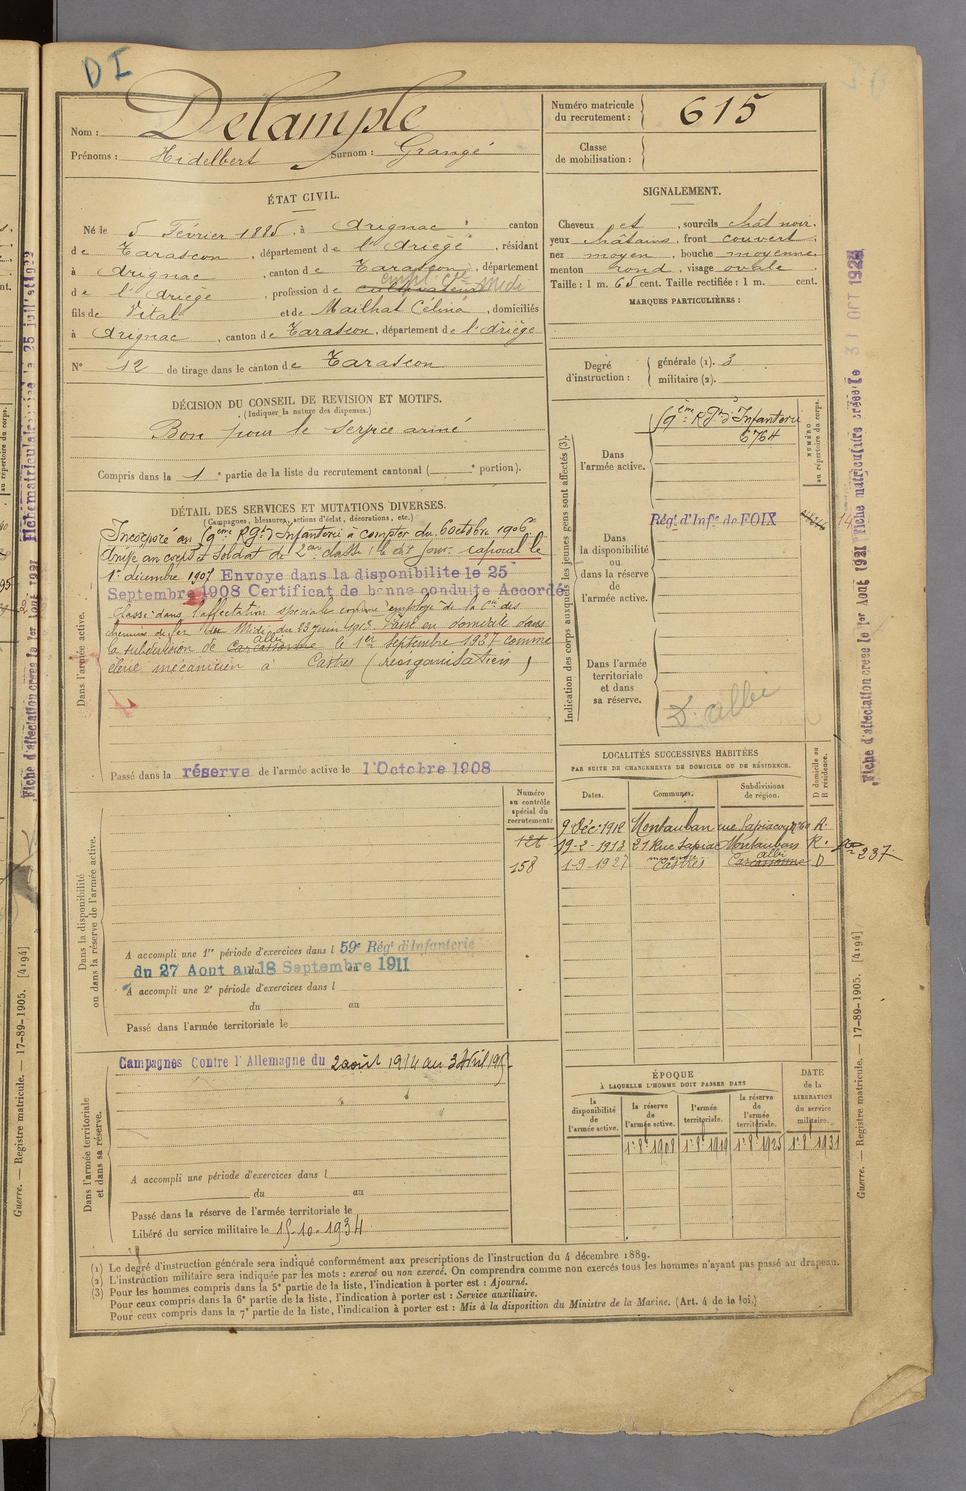 DI
Nom : Delample
Prénoms : Hidelbert Surnom : Grangé
Numéro matricule du recrutement : 615
Classe de mobilisation :
ÉTAT CIVIL.
Né le 5 Février 1885, à Arignac, canton
de Tarascon, département de l'Ariège, résidant
à Arignac, canton de Tarascon, département
de l'Ariège, profession de cultivateur empl. Cie Midi
fils de Vital et de Mailhat Célina, domiciliés
à Arignac, canton de Tarascon, département de l'Ariège
N° 12 de tirage dans le canton de Tarascon
SIGNALEMENT.
Cheveux et, sourcils chât noir,
yeux châtains, front couvert,
nez moyen, bouche moyenne,
menton rond, visage ovale.
Taille : 1 m. 65 cent. Taille rectifiée : 1 m. cent.
MARQUES PARTICULIÈRES :
Degré d'instruction : générale (1). 3
militaire (2).
DÉCISION DU CONSEIL DE REVISION ET MOTIFS.
(Indiquer la nature des dispenses.)
Bon pour le service armé
Compris dans la 1e partie de la liste du recrutement cantonal ( e portion).
DÉTAIL DES SERVICES ET MUTATIONS DIVERSES.
(Campagnes, blessures, actions d'éclat, décorations, etc.)
Incorporé au 9ème Rgt d'Infanterie à compter du 6 octobre 1906
Arrivé au corps et soldat de 2eme classe le dit jour. caporal le
1er décembre 1907 Envoye dans la disponibilite le 25
Septembre 1908 Certificat de bonne conduite Accordé
Classé dans l'affectation spéciale comme employé de la Cie des
chemins de fer du Midi du 23 juin 1913. Passé en domicile dans
la subdivision de Carcassonne albi le 1er septembre 1927 comme
élève mécanicien à Castres (reorganisation)
Dans l'armée active.
Passé dans la réserve de l'armée active le 1 Octobre 1908
Indication des corps auxquels les jeunes gens sont affectés (3).
NUMÉRO au répertoire du corps.
Dans l'armée active.
9ème Rgt d'Infanterie
6764
Dans la disponibilité ou dans la réserve de l'armée active.
Régt d'Infie de FOIX
Dans l'armée territoriale et dans sa réserve.
D. albi
LOCALITÉS SUCCESSIVES HABITÉES
PAR SUITE DE CHANGEMENTS DE DOMICILE OU DE RÉSIDENCE.
Dates. Communes. Subdivisions de région. D domicile ou R résidence.
9 Déc. 1912 Montauban rue Sapiacou n° 60 R.
19-2-1913 21 Rue Sapiac Montauban R.
1-9-1927 Castres Carcassonne albi D
237
Dans la disponibilité ou dans la réserve de l'armée active.
Numéro au contrôle spécial du recrutement :
121
158
A accompli une 1re période d'exercices dans l 59e Régt d'Infanterie
du 27 Aout au 18 Septembre 1911
A accompli une 2e période d'exercices dans l
du au
Passé dans l'armée territoriale le
Dans l'armée territoriale et dans sa réserve.
Campagnes Contre l'Allemagne du 2 août 1914 au 3 Avril 191
A accompli une période d'exercices dans l
du au
Passé dans la réserve de l'armée territoriale le
Libéré du service militaire le 15-10-1934
ÉPOQUE
À LAQUELLE L'HOMME DOIT PASSER DANS
la disponibilité de l'armée active. la réserve de l'armée active. l'armée territoriale. la réserve de l'armée territoriale.
DATE de la LIBÉRATION du service militaire.
1r 8e 1908 1r 8e 1919 1r 8e 1925 1r 8e 1931
(1) Le degré d'instruction générale sera indiqué conformément aux prescriptions de l'instruction du 4 décembre 1889.
(2) L'instruction militaire sera indiquée par les mots : exercé ou non exercé. On comprendra comme non exercés tous les hommes n'ayant pas passé au drapeau.
(3) Pour les hommes compris dans la 5e partie de la liste, l'indication à porter est : Ajourné.
Pour ceux compris dans la 6e partie de la liste, l'indication à porter est : Service auxiliaire.
Pour ceux compris dans la 7e partie de la liste, l'indication à porter est : Mis à la disposition du Ministre de la Marine. (Art. 4 de la loi.)
Fiche d'affectation créée le 1er Aout 1921 Fiche matriculaire créée le 31 OCT 1923
Guerre. — Registre matricule. — 17-89-1905. [4194]
Guerre. — Registre matricule. — 17-89-1905. [4194]